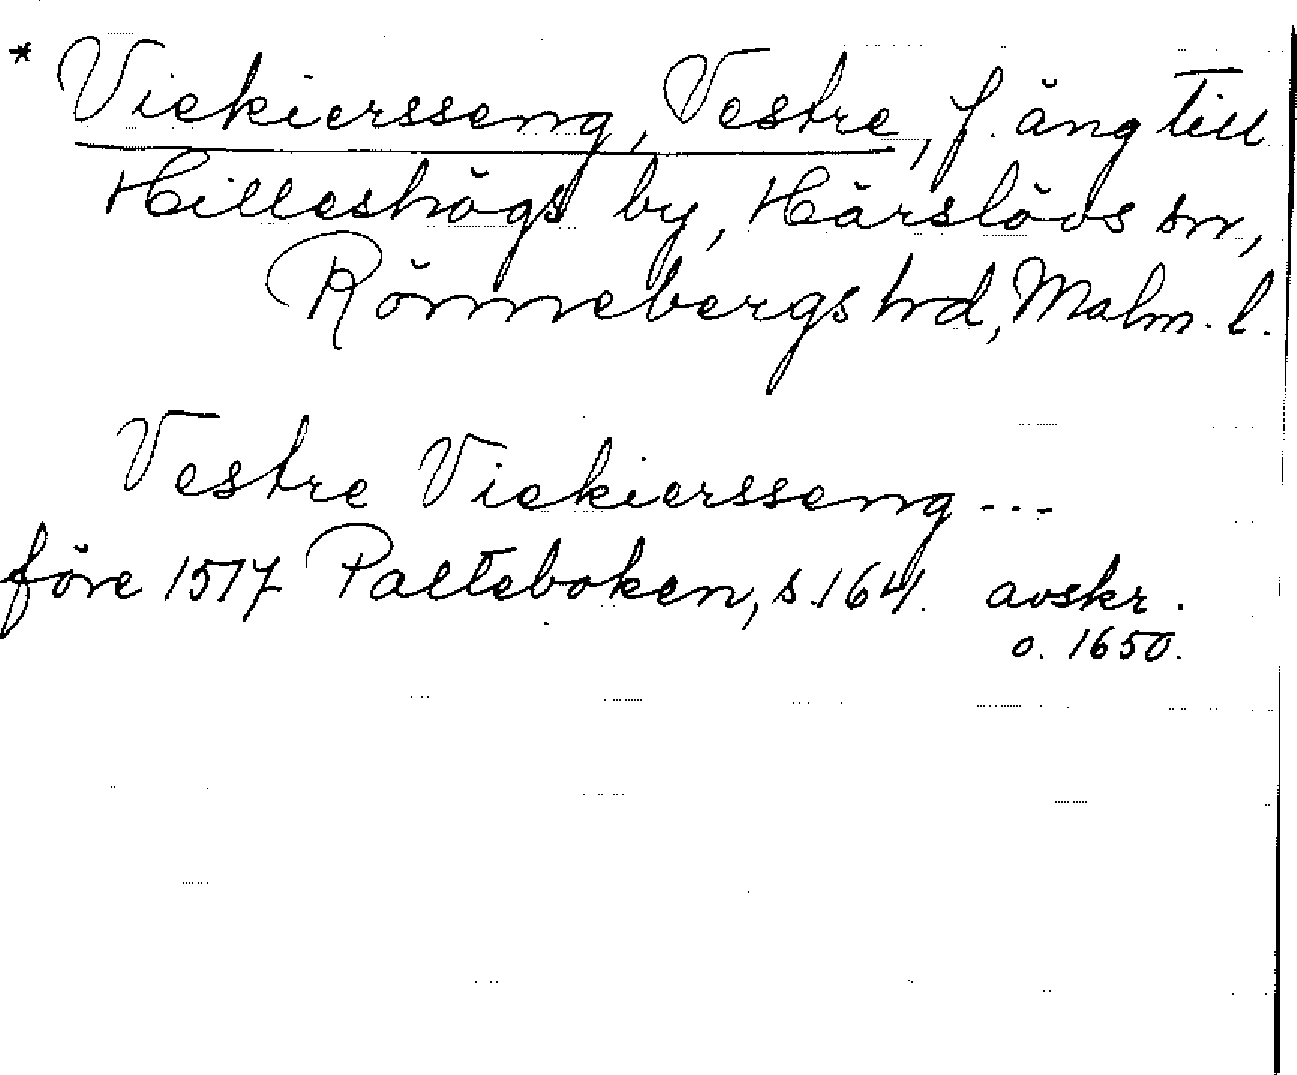 * Viekiersseng, Vestre, f. äng till
Hilleshögs by, Härslövs sn,
Rönnebergs hrd, Malm. l.
Vestre Viekiersseng ...
före 1517 Palteboken, s. 164. avskr.
o. 1650.